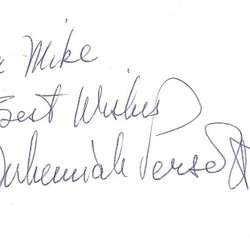 Mike
Best Wishes
Nehemiah Persoff